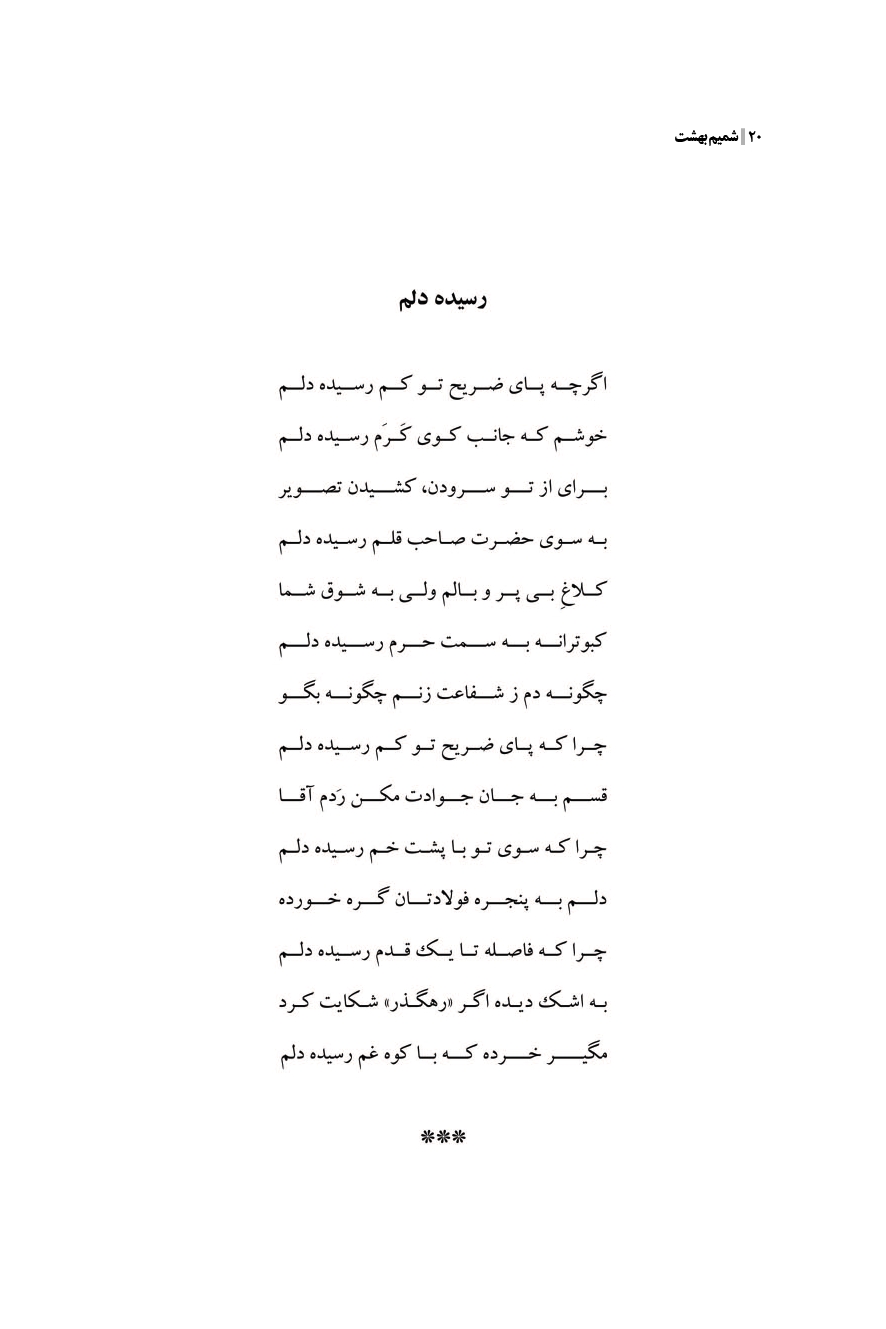 ۲۰ | شمیم بهشت
رسیده دلم
اگرچه پای ضریح تو کم رسیده دلم
خوشم که جانب کوی کَرَم رسیده دلم
برای از تو سرودن، کشیدن تصویر
به سوی حضرت صاحب قلم رسیده دلم
کلاغِ بی پر و بالم ولی به شوق شما
کبوترانه به سمت حرم رسیده دلم
چگونه دم ز شفاعت زنم چگونه بگو
چرا که پای ضریح تو کم رسیده دلم
قسم به جان جوادت مکن رَدم آقا
چرا که سوی تو با پشت خم رسیده دلم
دلم به پنجره فولادتان گره خورده
چرا که فاصله تا یک قدم رسیده دلم
به اشک دیده اگر «رهگذر» شکایت کرد
مگیر خرده که با کوه غم رسیده دلم
***